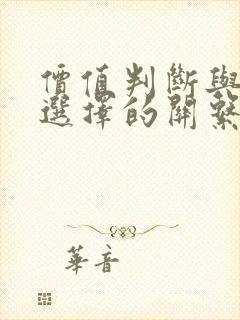 價值判斷與
選擇的關繫
華音